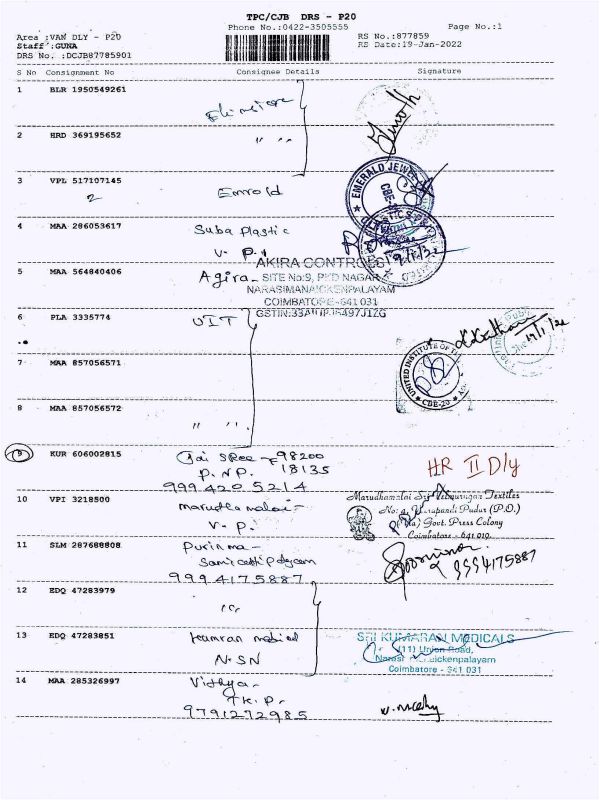 TPC/CJB DRS - P20
Phone No.:0422-3505555
Page No.:1
Area :VAN DLY - P20
Staff :GUNA
DRS No. :DCJB87785901
RS No.:877859
RS Date:19-Jan-2022
S No Consignment No Consignee Details Signature
1 BLR 1950549261
2 HRD 369195652
" "
3 VPL 517107145
2
Emrold
EMERALD JEWEL
4 MAA 286053617 Suba plastic
V. P.
5 MAA 564840406 Agira
AKIRA CONTROLS
SITE No:9, PKD NAGAR
NARASIMANAICKENPALAYAM
COIMBATORE-641 031
6 PLA 3335774 UIT
UNITED INSTITUTE OF
CBE-20
7 MAA 857056571
8 MAA 857056572
" "
9 KUR 606002815 Jai SRee - 98200
P.NP. 18135
9994205214
HR II Dly
10 VPI 3218500 marudhamalai-
V. P.
Marudhamalai Sri Velmurugan Textiles
Govt. Press Colony
Coimbatore - 641 019.
11 SLM 287688808 Purinma-
Samichettipalayam
9994175887
9994175887
12 EDQ 47283979
13 EDQ 47283851 kumran medical
N.SN
SRI KUMARAN MEDICALS
(11) Union Road,
Coimbatore - 641 031
14 MAA 285326997 Vidhya-
TK.P.
9791272985